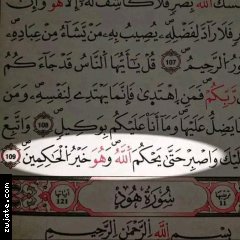 يمسسك الله بضر فلا كاشف له إلا هو وإن
فلا راد لفضله يصيب به من يشاء من عباده
الرحيم 107 قل يا أيها الناس قد جاءكم
ربكم فمن اهتدى فإنما يهتدي لنفسه ومن
يضل عليها وما أنا عليكم بوكيل 108 واتبع
إليك واصبر حتى يحكم الله وهو خير الحاكمين 109
سورة هود
121
11
بسم الله الرحمن الرحيم
zujate.com